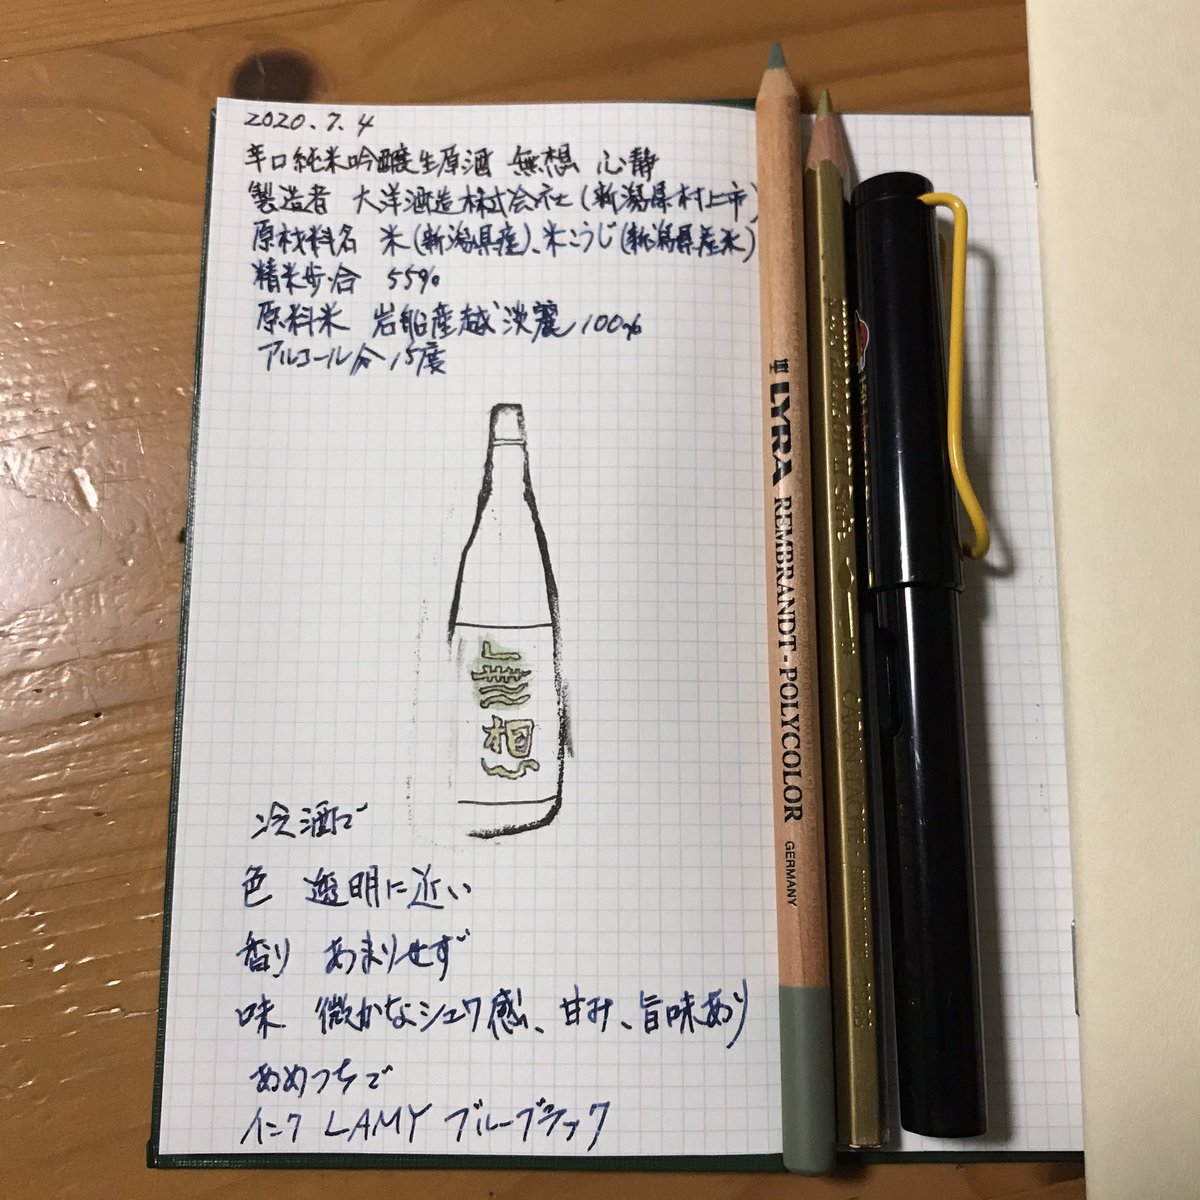 2020.7.4
辛口純米吟醸生原酒 無想 心静
製造者 大洋酒造株式会社(新潟県村上市)
原材料名 米(新潟県産)、米こうじ(新潟県産米)
精米歩合 55%
原料米 岩船産越淡麗100%
アルコール分 15度
無想
冷酒で
色 透明に近い
香り あまりせず
味 微かなシュワ感、甘み、旨味あり
あめつちで
インク LAMY ブルーブラック
LYRA REMBRANDT-POLYCOLOR GERMANY